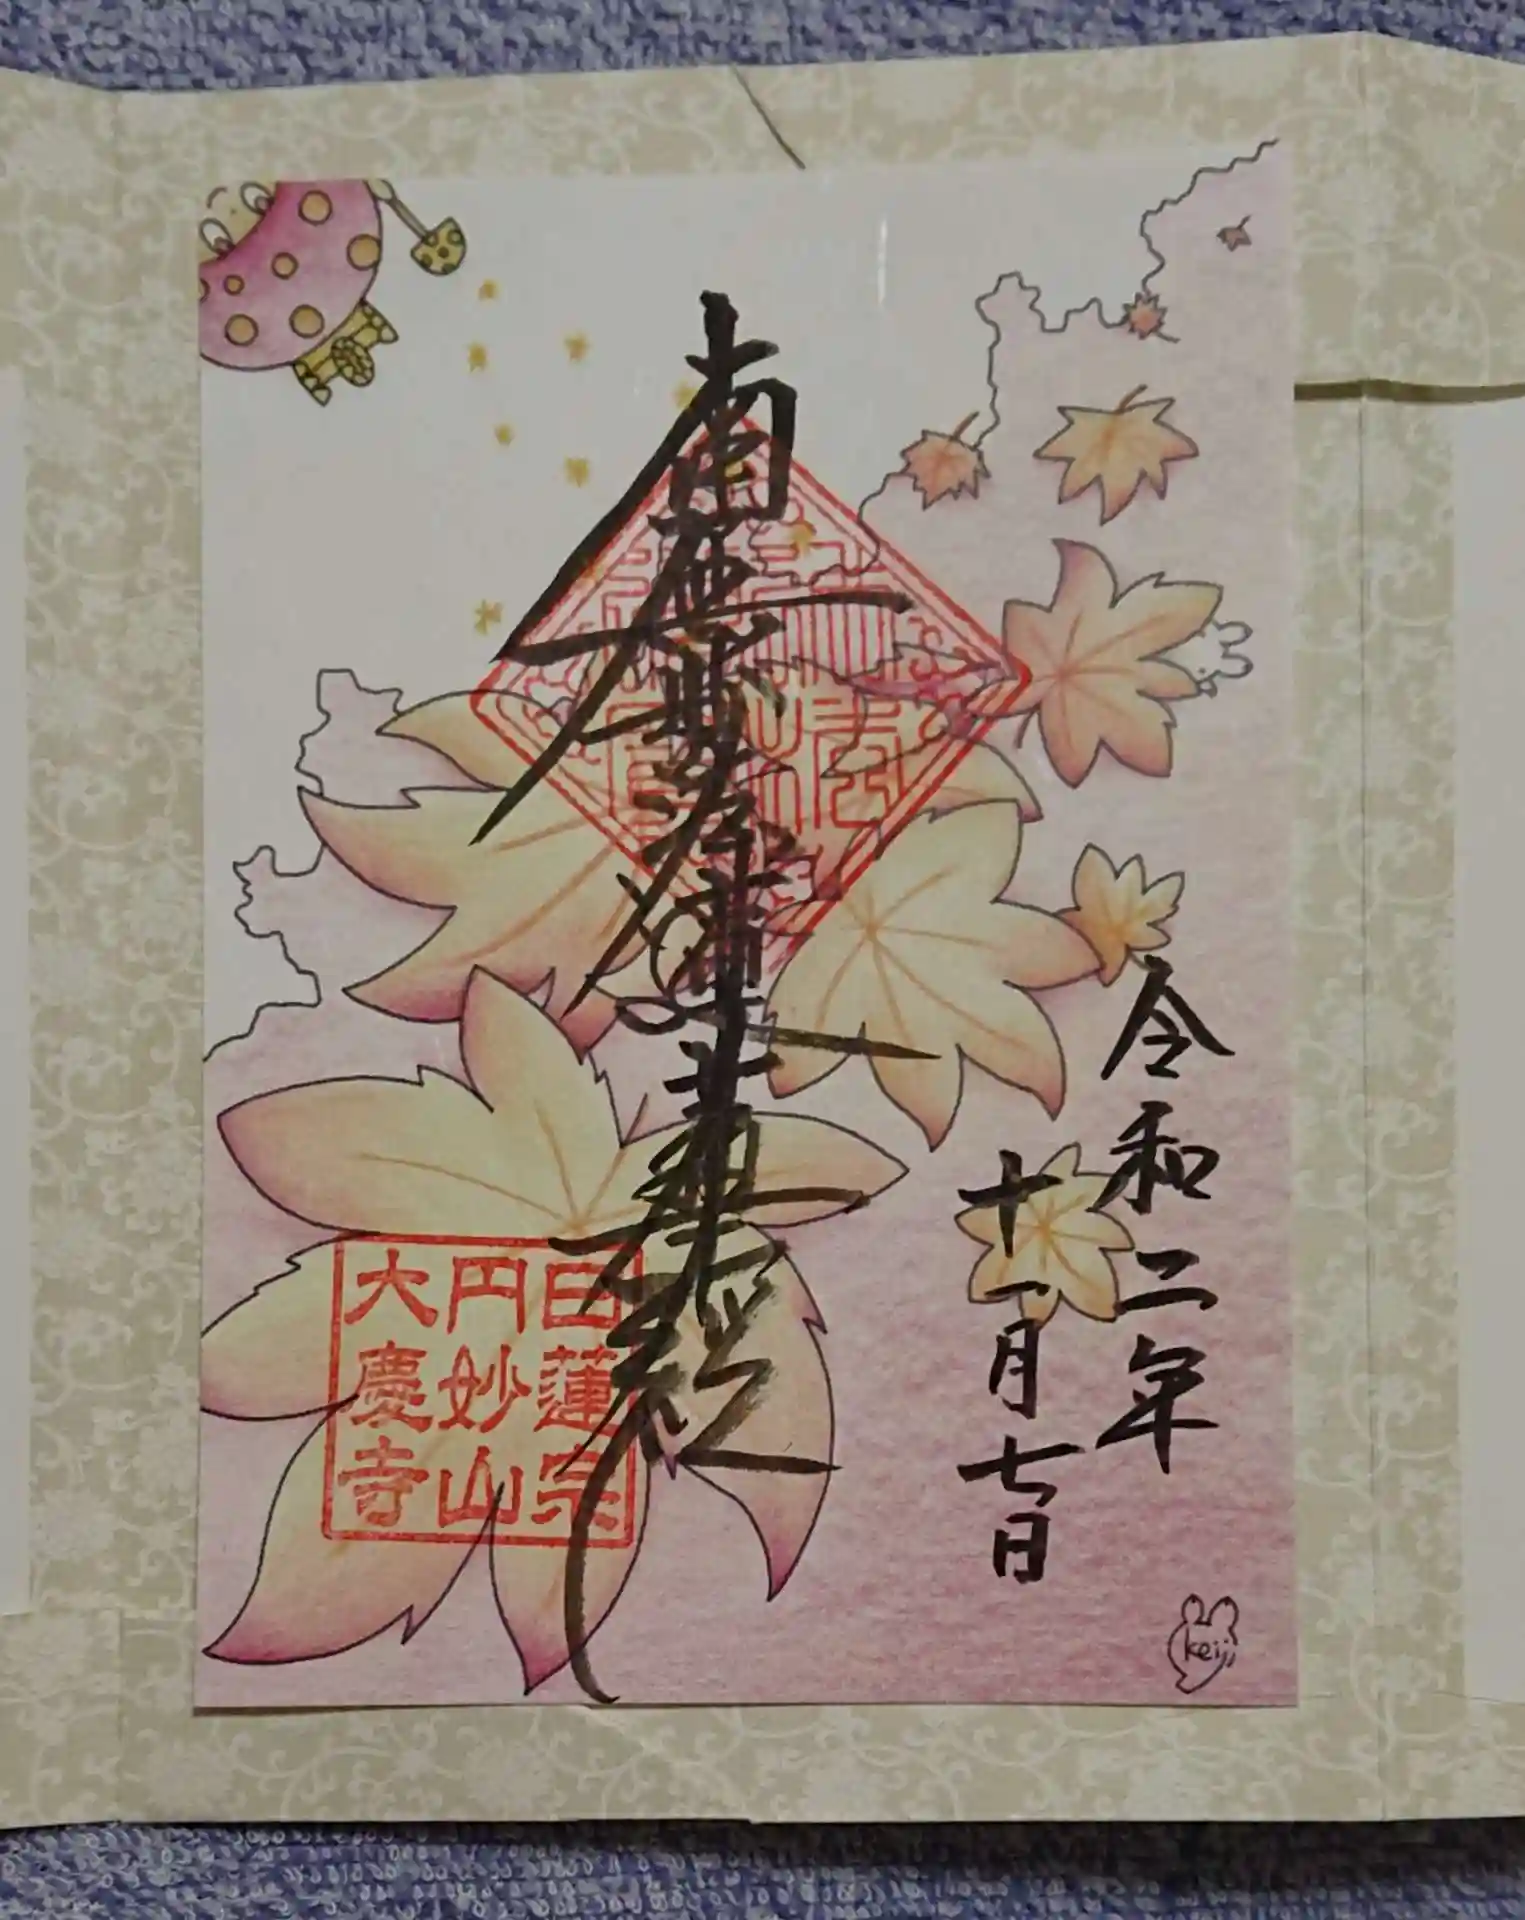 令和二年
十一月七日
南無妙法蓮華経
日蓮宗
円妙山
大慶寺
keiji